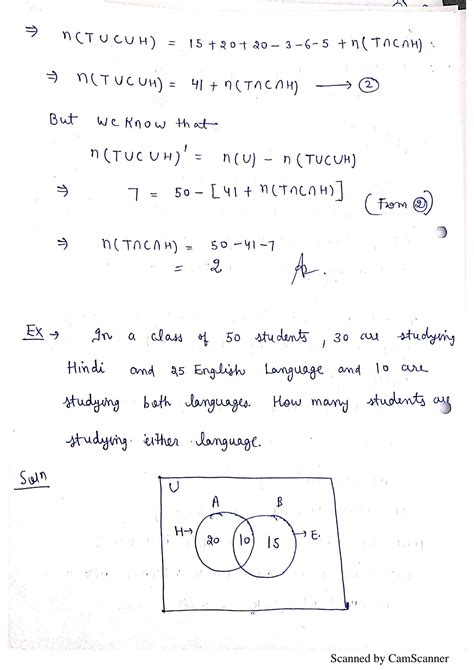 ⇒ n(TUCUH) = 15+20+20-3-6-5+n(T∩C∩H).
⇒ n(TUCUH) = 41 + n(T∩C∩H) → ②
But we know that
n(TUCUH)' = n(U) - n(TUCUH)
⇒ 7 = 50 - [41 + n(T∩C∩H)]
(From ②)
⇒ n(T∩C∩H) = 50-41-7
= 2
Ex → In a class of 50 students, 30 are studying
Hindi and 25 English Language and 10 are
studying both languages. How many students are
studying either language.
Soln
U
A B
H→ 20 10 15 →E.
Scanned by CamScanner